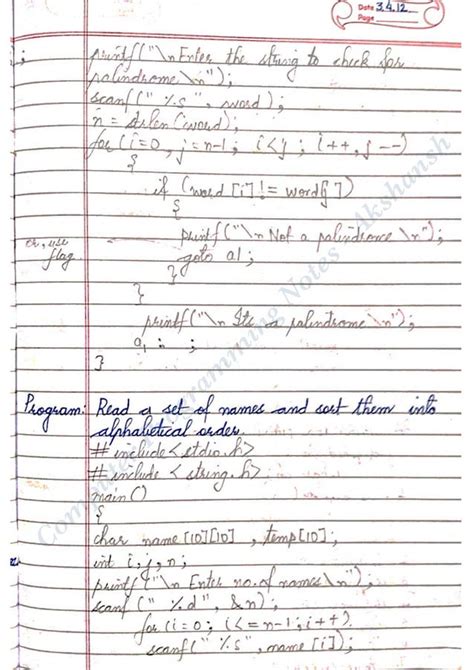 Date 3.4.12
Page
printf("\n Enter the string to check for
palindrome \n");
scanf(" %s ", word);
n = strlen(word);
for(i=0, j=n-1; i<j; i++, j--)
{
if (word [i] != word[j])
{
printf("\n Not a palindrome \n");
or, use
flag
goto a1;
}
}
printf("\n Its a palindrome \n");
a1 : ;
}
Program: Read a set of names and sort them into
alphabetical order.
# include < stdio.h>
# include < string.h>
main()
{
char name [10][10], temp[10];
int i, j, n;
printf("\n Enter no. of names \n");
scanf(" %d", &n);
for(i=0; i<=n-1; i++)
scanf(" %s", name[i]);
Computer Programming Notes Akshansh